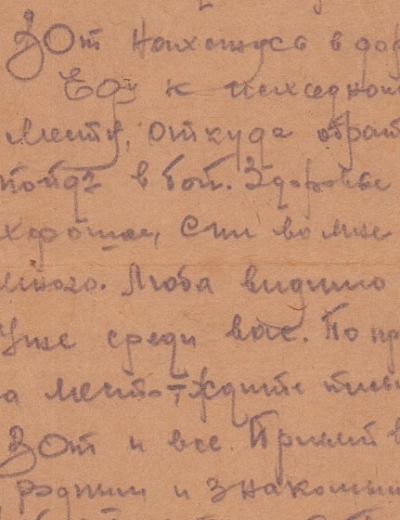 Вот нахожусь в дор
Еду к исходном
месту, откуда обрат
пойду в бой. Здоровье
хорошее, сил во мне
много. Люба видимо
уже среди вас. По пр
а место-ждите пись
Вот и все. Привет в
родным и знакомым